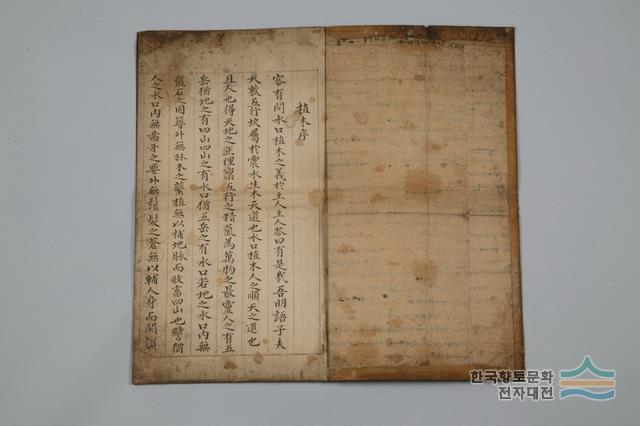 植木序
客有問水口植木之義於主人主人答曰有是哉吾明語子夫
天數五行坎屬於震水生木天道也水口植木人之順天之道也
且人也得天地之正理稟五行之精氣為萬物之最靈人之有五
岳猶地之有四山四山之有水口猶五岳之有水口若地之水口內無
盤石之固鎖外無林木之蘩植無以補地脉而收畜四山也譬猶
人之水口內無齒牙之要外無鬚髮之蒼無以輔人身而關鎖
한국향토문화
전자대전